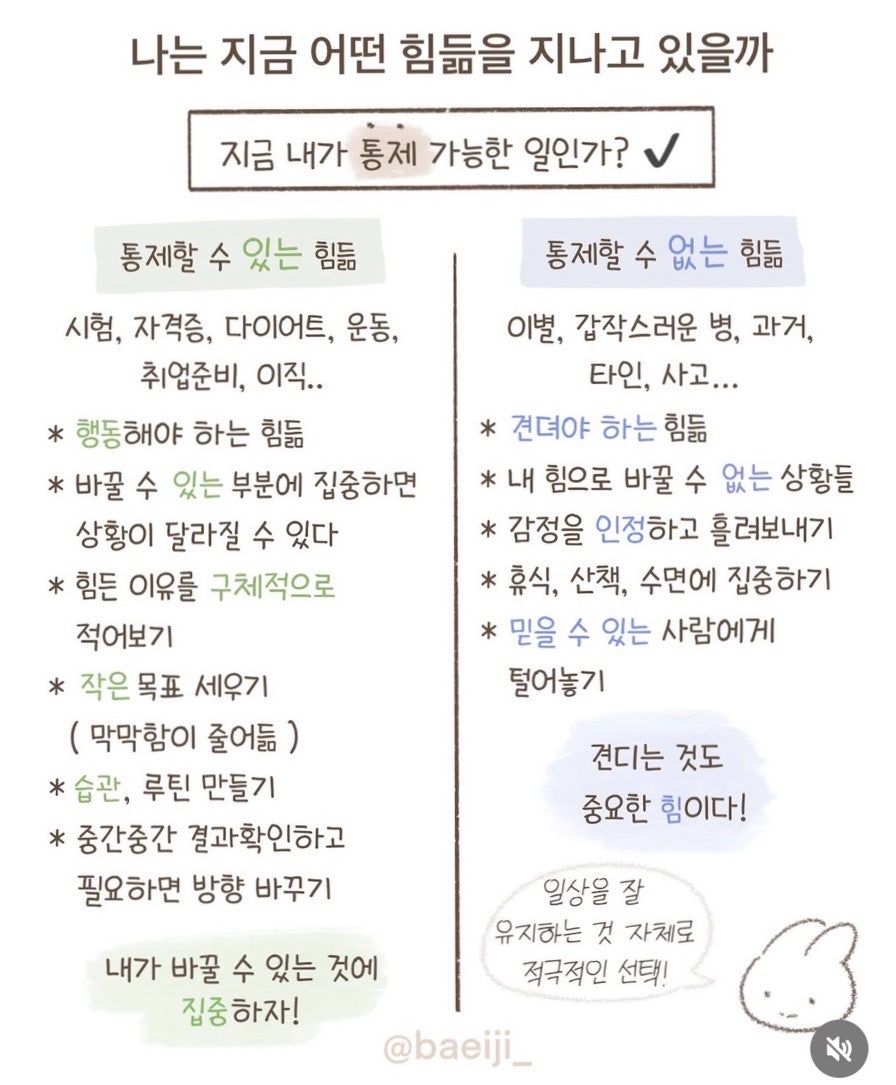 나는 지금 어떤 힘듦을 지나고 있을까
지금 내가 통제 가능한 일인가? ✔
통제할 수 있는 힘듦
시험, 자격증, 다이어트, 운동,
취업준비, 이직..
* 행동해야 하는 힘듦
* 바꿀 수 있는 부분에 집중하면
상황이 달라질 수 있다
* 힘든 이유를 구체적으로
적어보기
* 작은 목표 세우기
( 막막함이 줄어듦 )
* 습관, 루틴 만들기
* 중간중간 결과확인하고
필요하면 방향 바꾸기
내가 바꿀 수 있는 것에
집중하자!
통제할 수 없는 힘듦
이별, 갑작스러운 병, 과거,
타인, 사고...
* 견뎌야 하는 힘듦
* 내 힘으로 바꿀 수 없는 상황들
* 감정을 인정하고 흘려보내기
* 휴식, 산책, 수면에 집중하기
* 믿을 수 있는 사람에게
털어놓기
견디는 것도
중요한 힘이다!
일상을 잘
유지하는 것 자체로
적극적인 선택!
@baeiji_